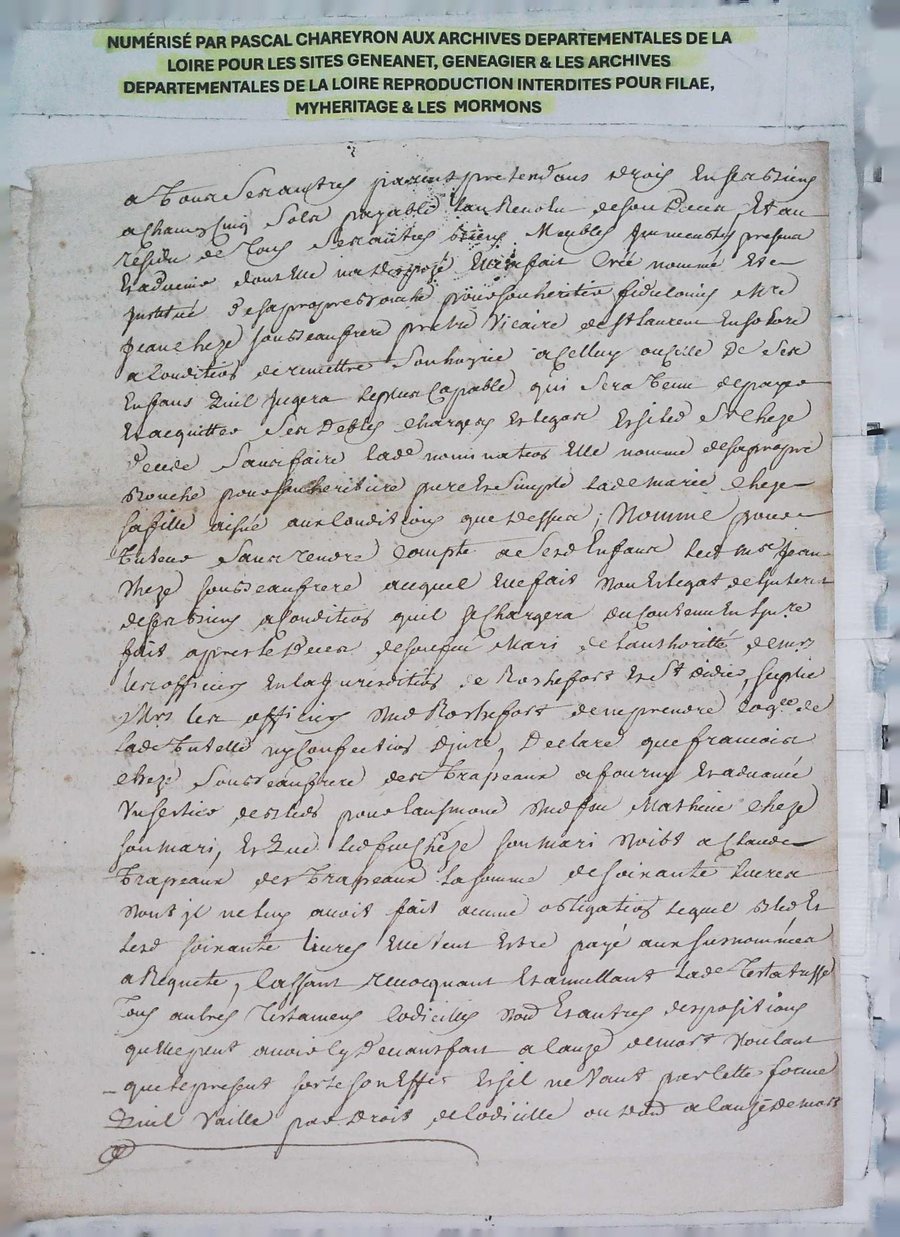 NUMÉRISÉ PAR PASCAL CHAREYRON AUX ARCHIVES DEPARTEMENTALES DE LA
LOIRE POUR LES SITES GENEANET, GENEAGIER & LES ARCHIVES
DEPARTEMENTALES DE LA LOIRE REPRODUCTION INTERDITES POUR FILAE,
MYHERITAGE & LES MORMONS
a Tous ses autres parents pretendans drois en ses biens
a chacun Cinq sols payable lan Revolu de son Deces, Et au
residu de Tous ses autres biens Meubles Immeubles presens
Et advenir dont Elle na disposé Elle a fait Créé nommé Et
Institué de sa propre bouche pour son heritier fiduciaire Mre
Jean cheze son beaufrere pretre Vicaire de St Laurent En
a Condition de remettre son hoyrie a Celluy ou Celle de ses
Enfans quil Jugera le plus Capable qui sera Tenu de payer
Et acquitter ses Debtes charges Et legats Et si led Sr Cheze
Decede sans faire lade nomination Elle nomme de sa propre
bouche pour son heritiere pure Et simple lade marie cheze
sa fille aisné aux Conditions que dessus; Nomme pour
Tuteur sans rendre Compte a sesd Enfans led mre Jean
Cheze son beaufrere auquel Elle fait don Et legat de
de ses biens a Condition quil se Chargera du Contenu En
fait appres le Deces de son feu Mari de lauthorité de mrs
les officiers En la Jurisdition de Rochefort Et St didier, suplie
Mrs les officiers dud Rochefort de ne prendre de
lade Tutelle ny Confection, Declare que francois
cheze son beaufrere des Trapeaux a fourny Et advancé
Un sertier de bled pour laumone dud feu Mathieu Cheze
son mari, Et que led feu Cheze son mari doibt a Claude
Trapeaux des Trapeaux la somme de soixante livres
dont il ne luy avoit fait aucune obligation lequel bled Et
lesd soixante livres Elle veut Estre payé aux surnommés
a Requete, Cassant revocquant Et annullant lade Testatrisse
Tous autres Testamens Codicilles Et autres dispositions
quelle peut avoir Cy Devant fait a Cauze de mort voulant
que le present sorte son Effet Et sil ne Vaut par Cette forme
quil Vaille par droit de Codicille ou a Cauze de mort